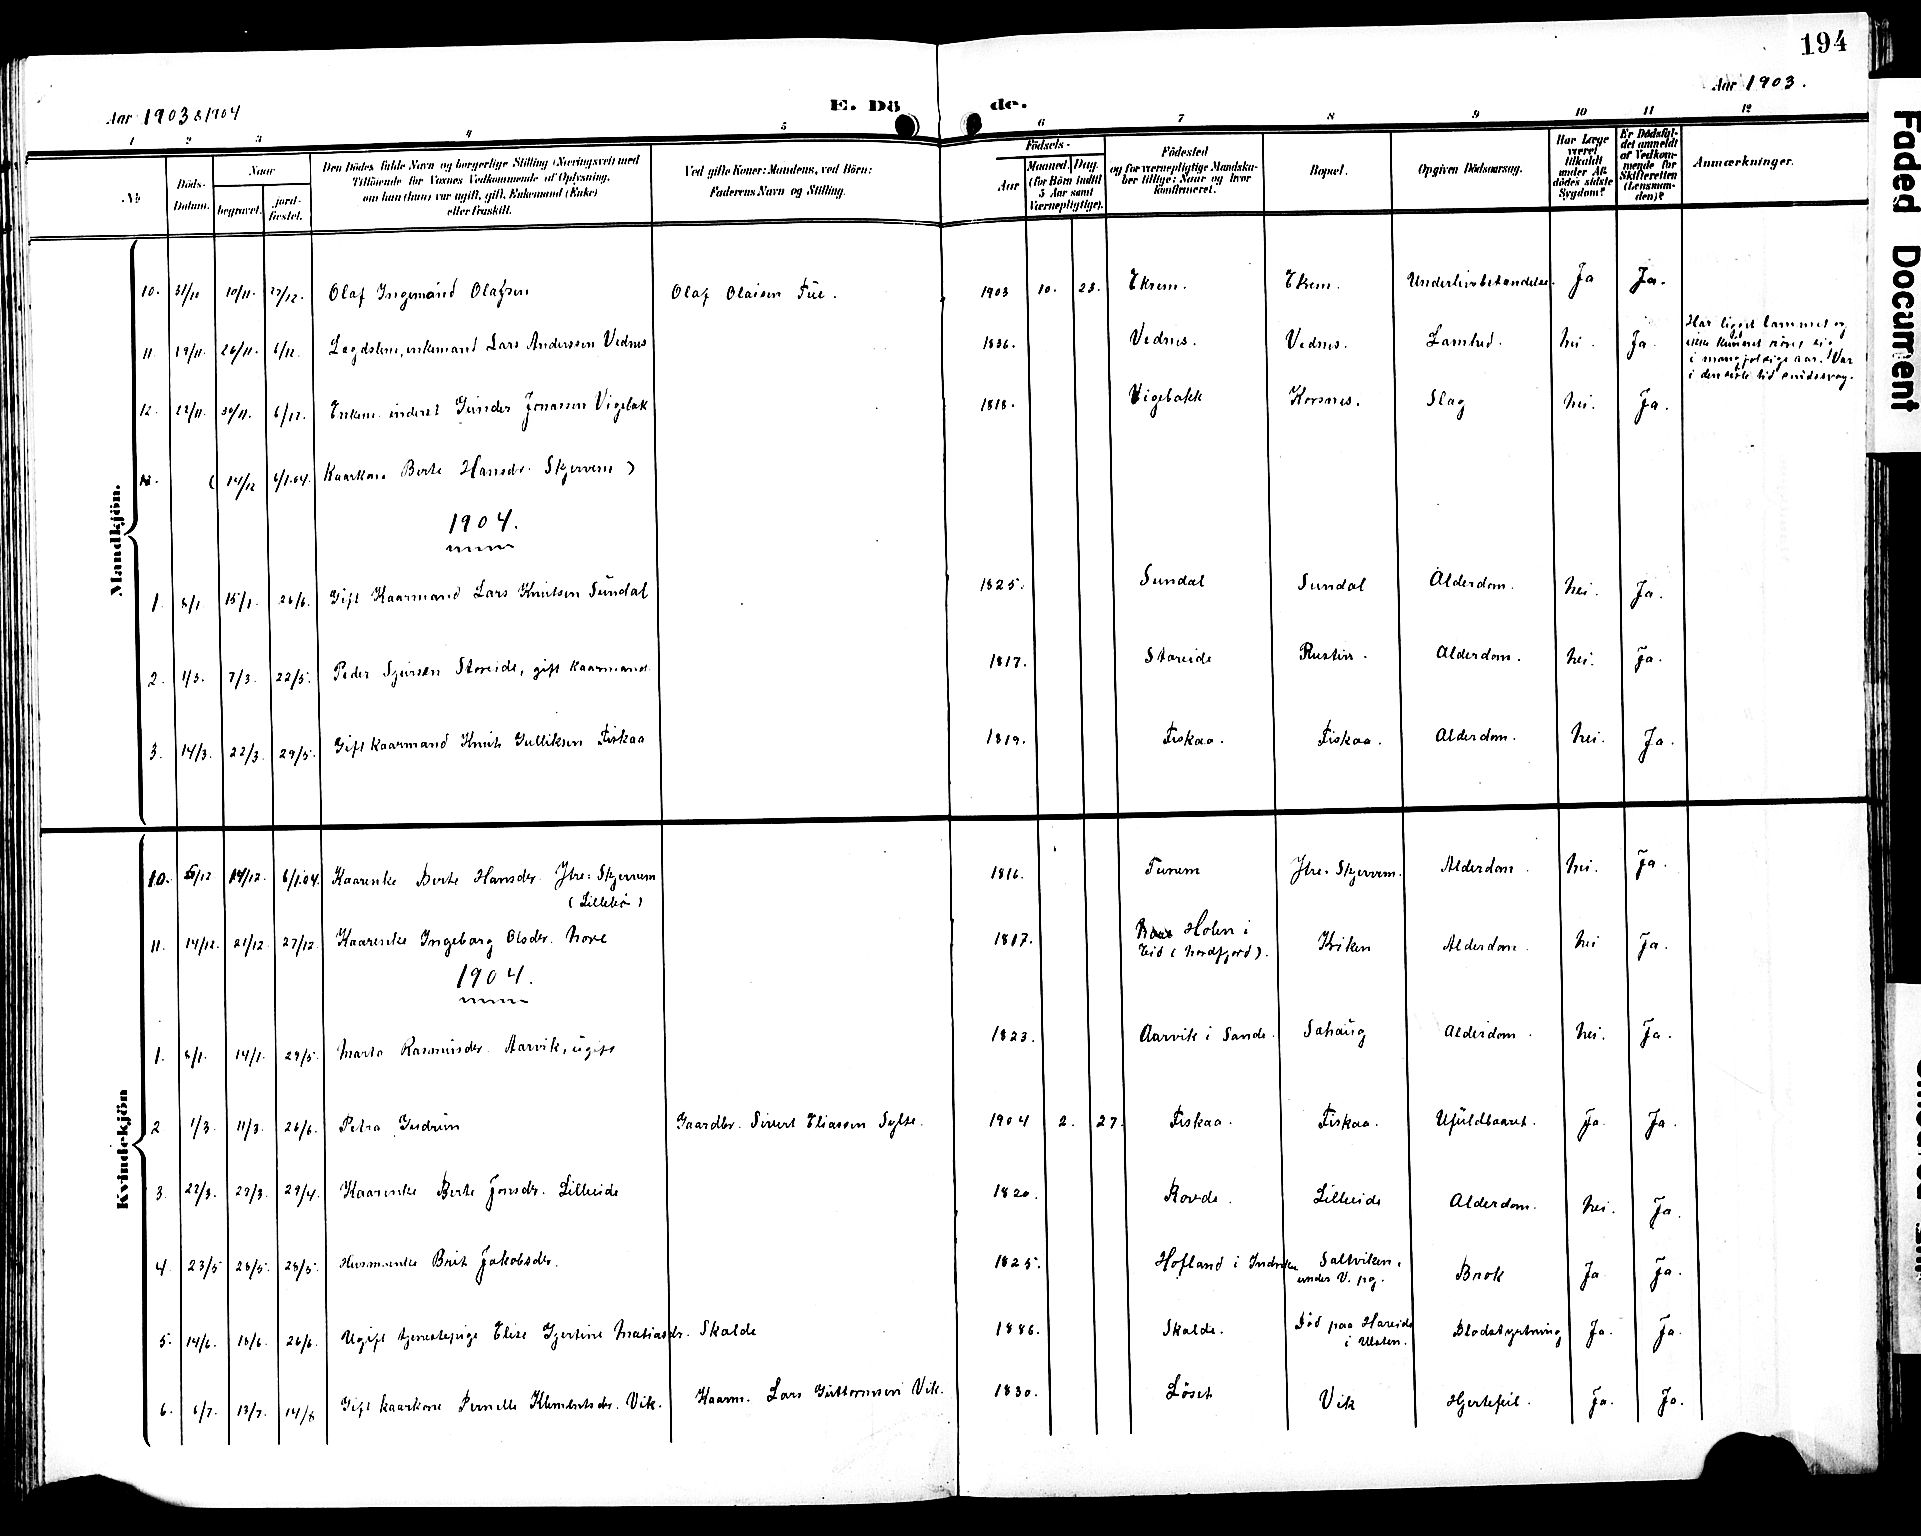 194
Aar 1903 & 1904
E. Dö
de.
Aar 1903.
1 2 3 4 5 6 7 8 9 10 11 12
No
Döds-Datum.
Naar
begravet.
jord-fæstet.
Den Dödes fulde Navn og borgerlige Stilling (Næringsvei) med
Tilföiende for Voxnes Vedkommende af Oplysning,
om han (hun) var ugift, gift, Enkemand (Enke)
eller fraskilt.
Ved gifte Koner: Mandens, ved Börn:
Faderens Navn og Stilling.
Födsels-
Aar
Maaned. Dag.
(for Börn indtil
5 Aar samt
Værnepligtige).
Födested
og for værnepligtige Mandska-
ber tillige: Naar og hvor
konfirmeret.
Bopæl.
Opgiven Dödsaarsag.
Har Læge
været
tilkaldt
under Af-
dödes sidste
Sygdom?
Er Dödsfal-
det anmeldt
af Vedkom-
mende for
Skifteretten
(Lensman-
den)?
Anmærkninger.
Mandkjön.
10. 31/10 10/11. 27/12. Olaf Ingemand Olafsen Olaf Olaisen 1903 10. 23. Ekrem. Ekrem. Ja Ja.
11. 19/11. 26/11. 6/12. Lægdslem, enkemand Lars Anderssen Vednes 1836. Vednes. Vednes. Lamhed. Nei. Ja.
Har ligget lammet og
ikke kunnet røre sig
i mangfoldige aar. Var
i den siste tid
12. 22/11. 30/11. 6/12. Gunder Jonassen Vigebak 1818. Vigebakk Korsnes. Slag Nei. Ja.
( 14/12 6/1.04. Kaarkone Berte Hansdr. Skjervem )
1904.
1. 8/1 15/1. 26/6. Gift Kaarmand Lars Knutsen Sundal 1825. Sundal Sundal Alderdom. Nei. Ja.
2. 1/3. 7/3. 22/5. Peder Sjursen Storeide, gift kaarmand. 1817. Storeide Alderdom. Nei. Ja.
3. 14/3. 22/3. 29/5. Gift kaarmand Knut Gulliksen Fiskaa 1819. Fiskaa. Fiskaa. Alderdom. Nei. Ja.
Kvindekjön
10. 5/12 14/12. 6/1.04. Kaarenke Berte Hansdr. Ytre-Skjervem 1816. Tunem Ytre-Skjervem. Alderdom. Nei. Ja.
(Lillebø)
11. 14/12. 21/12. 27/12. Kaarenke Ingeborg Olsdr. Nore 1817. Holen i
Eid (Nordfjord). Kriken Alderdom. Nei Ja.
1904.
1. 8/1. 14/1. 29/5. Marta Rasmusdr. Aarvik, ugift 1823. Aarvik i Sande. Sahaug Alderdom. Nei. Ja.
2 1/3. 11/3. 26/6. Petra Gudrun Gaardbr. Sivert Eliassen Sylte. 1904 2. 27. Fiskaa. Fiskaa. Ufuldbaaret. Ja. Ja.
3. 22/3. 29/3. 29/4. Kaarenke Berte Jonsdr. Lilleeide 1820. Rovde. Lilleeide Alderdom. Nei. Ja.
4. 23/5 28/5. 28/5. Husmenke Brit Jakobsdr. 1825. Hofland i Saltviken,
under V. pg. Brok Ja Ja.
5. 14/6. 18/6. 26/6. Ugift tjenestepige Elise Gjertine Matiasdr. Skalde 1886. Skalde. Död paa Hareide
i Ulsten. Blodstyrtning Ja. Ja.
6. 6/7. 13/7. 14/8 Gift kaarkone Pernille Klemetsdr. Vik. Kaarm. Lars Guttormsen Vik. 1830. Løset Vik Hjertefeil. Ja. Ja.
Faded Document